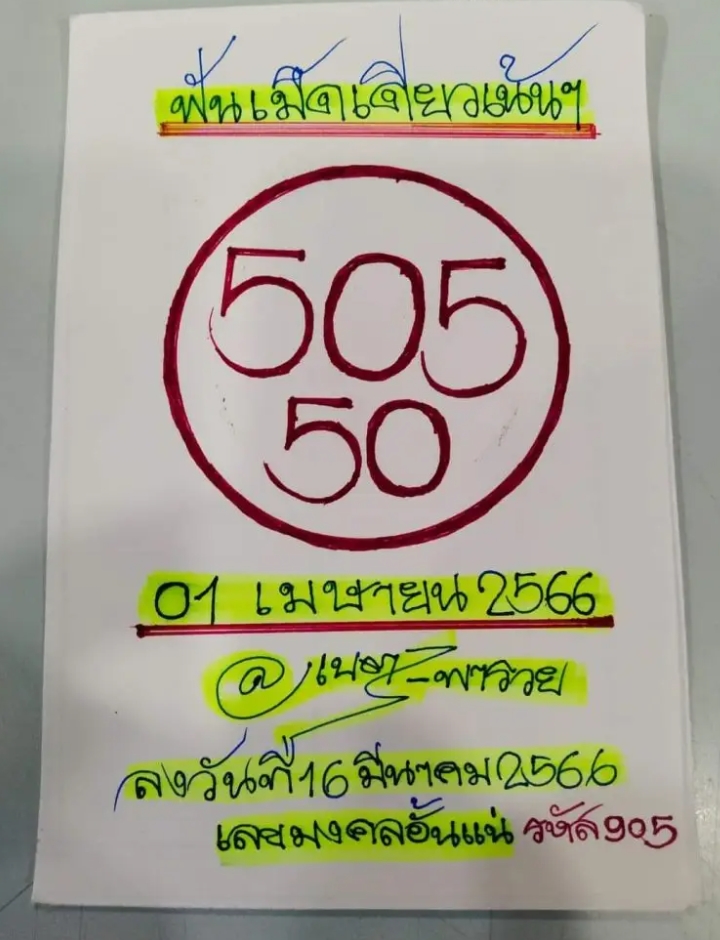 ฟันเม็ดเดียวเน้นๆ
505
50
01 เมษายน 2566
@ พารวย
ลงวันที่ 16 มีนาคม 2566
เลขมงคลอั้นแน่ รหัส905